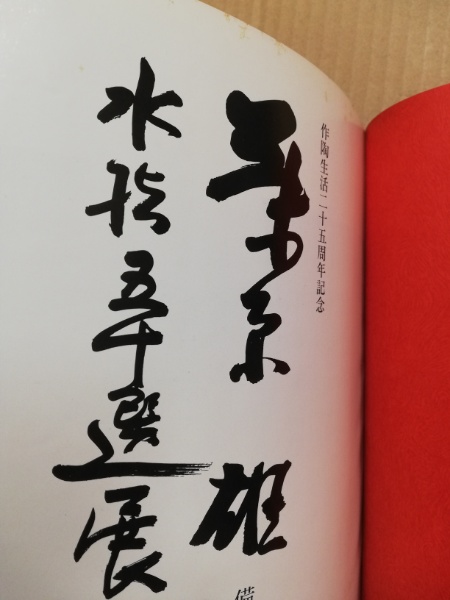 作陶生活二十五周年記念
藤原 雄
水指五十選展
備